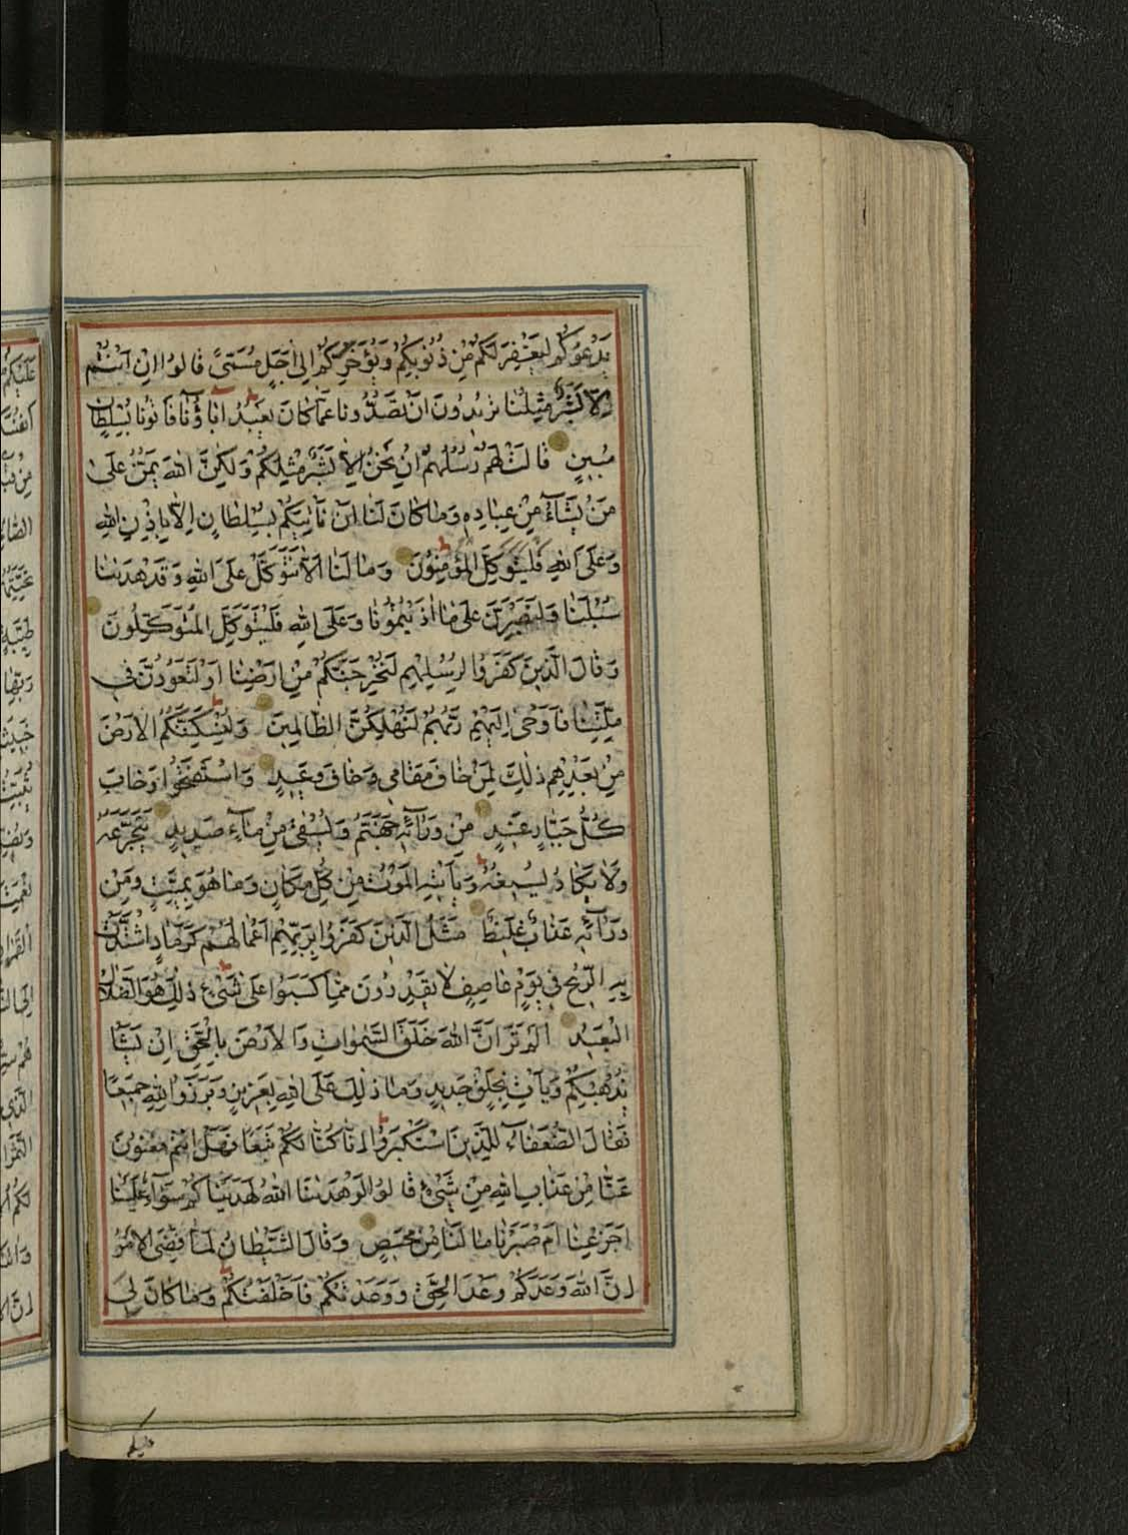 يَدْعُوكُمْ لِيَغْفِرَ لَكُمْ مِنْ ذُنُوبِكُمْ وَيُؤَخِّرَكُمْ اِلٰى اَجَلٍ مُسَمًّى قَالُوا اِنْ اَنْتُمْ
اِلَّا بَشَرٌ مِثْلُنَا تُرِيدُونَ اَنْ تَصُدُّونَا عَمَّا كَانَ يَعْبُدُ اٰبَاؤُنَا فَأْتُونَا بِسُلْطَانٍ
مُبِينٍ قَالَتْ لَهُمْ رُسُلُهُمْ اِنْ نَحْنُ اِلَّا بَشَرٌ مِثْلُكُمْ وَلٰكِنَّ اللهَ يَمُنُّ عَلٰى
مَنْ يَشَآءُ مِنْ عِبَادِهِ وَمَا كَانَ لَنَا اَنْ نَأْتِيَكُمْ بِسُلْطَانٍ اِلَّا بِاِذْنِ اللهِ
وَعَلَى اللهِ فَلْيَتَوَكَّلِ الْمُؤْمِنُونَ وَمَا لَنَا اَلَّا نَتَوَكَّلَ عَلَى اللهِ وَقَدْ هَدٰينَا
سُبُلَنَا وَلَنَصْبِرَنَّ عَلٰى مَا اٰذَيْتُمُونَا وَعَلَى اللهِ فَلْيَتَوَكَّلِ الْمُتَوَكِّلُونَ
وَقَالَ الَّذِينَ كَفَرُوا لِرُسُلِهِمْ لَنُخْرِجَنَّكُمْ مِنْ اَرْضِنَا اَوْ لَتَعُودُنَّ فِي
مِلَّتِنَا فَاَوْحٰى اِلَيْهِمْ رَبُّهُمْ لَنُهْلِكَنَّ الظَّالِمِينَ وَلَنُسْكِنَنَّكُمُ الْاَرْضَ
مِنْ بَعْدِهِمْ ذٰلِكَ لِمَنْ خَافَ مَقَامِي وَخَافَ وَعِيدِ وَاسْتَفْتَحُوا وَخَابَ
كُلُّ جَبَّارٍ عَنِيدٍ مِنْ وَرَآئِهِ جَهَنَّمُ وَيُسْقٰى مِنْ مَآءٍ صَدِيدٍ يَتَجَرَّعُهُ
وَلَا يَكَادُ يُسِيغُهُ وَيَأْتِيهِ الْمَوْتُ مِنْ كُلِّ مَكَانٍ وَمَا هُوَ بِمَيِّتٍ وَمِنْ
وَرَآئِهِ عَذَابٌ غَلِيظٌ مَثَلُ الَّذِينَ كَفَرُوا بِرَبِّهِمْ اَعْمَالُهُمْ كَرَمَادٍ اشْتَدَّتْ
بِهِ الرِّيحُ فِي يَوْمٍ عَاصِفٍ لَا يَقْدِرُونَ مِمَّا كَسَبُوا عَلٰى شَيْءٍ ذٰلِكَ هُوَ الضَّلَالُ
الْبَعِيدُ اَلَمْ تَرَ اَنَّ اللهَ خَلَقَ السَّمٰوَاتِ وَالْاَرْضَ بِالْحَقِّ اِنْ يَشَأْ
يُذْهِبْكُمْ وَيَأْتِ بِخَلْقٍ جَدِيدٍ وَمَا ذٰلِكَ عَلَى اللهِ بِعَزِيزٍ وَبَرَزُوا لِلّٰهِ جَمِيعًا
فَقَالَ الضُّعَفَآءُ لِلَّذِينَ اسْتَكْبَرُوا اِنَّا كُنَّا لَكُمْ تَبَعًا فَهَلْ اَنْتُمْ مُغْنُونَ
عَنَّا مِنْ عَذَابِ اللهِ مِنْ شَيْءٍ قَالُوا لَوْ هَدٰينَا اللهُ لَهَدَيْنَاكُمْ سَوَآءٌ عَلَيْنَا
اَجَزِعْنَا اَمْ صَبَرْنَا مَا لَنَا مِنْ مَحِيصٍ وَقَالَ الشَّيْطَانُ لَمَّا قُضِيَ الْاَمْرُ
اِنَّ اللهَ وَعَدَكُمْ وَعْدَ الْحَقِّ وَوَعَدْتُكُمْ فَاَخْلَفْتُكُمْ وَمَا كَانَ لِيَ
عليكم